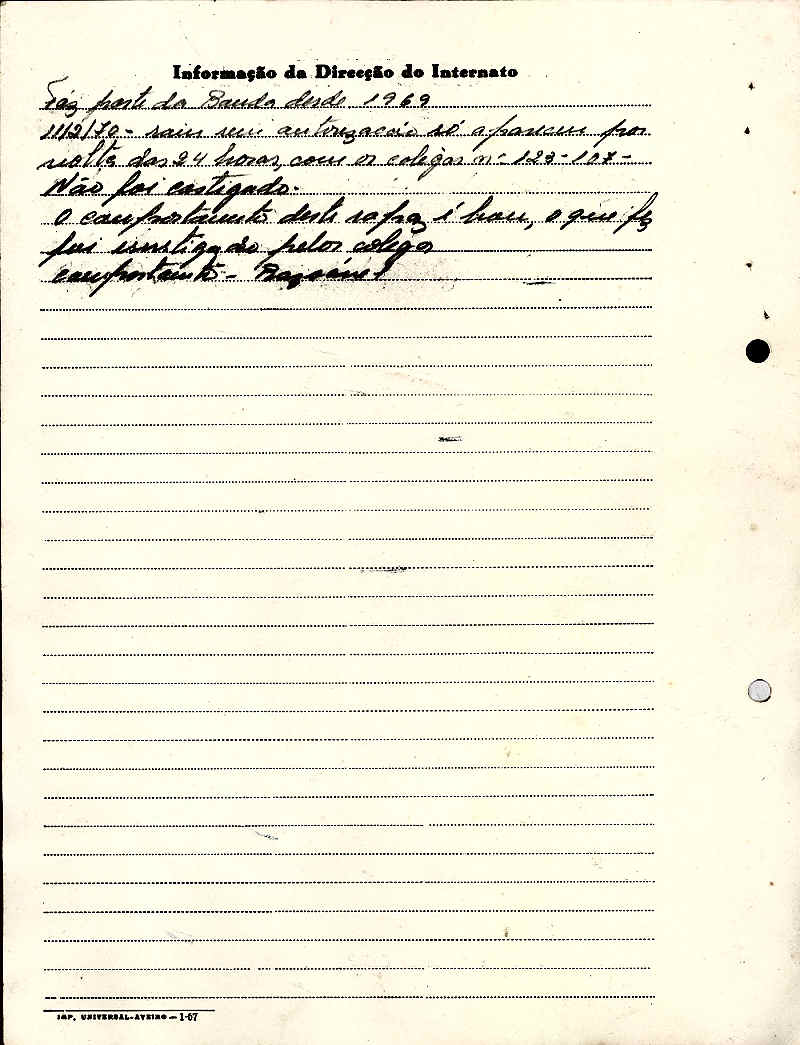 Informação da Direcção do Internato
Faz parte da Banda desde 1969
11/2/70 - saiu sem autorização só apareceu por
volta das 24 horas, com os colegas nº 123-107-
Não foi castigado.
O comportamento deste rapaz é bom, o que fez
foi instigação pelos colegas
comportamento - Razoável
IMP. UNIVERSAL-AVEIRO — 1-67